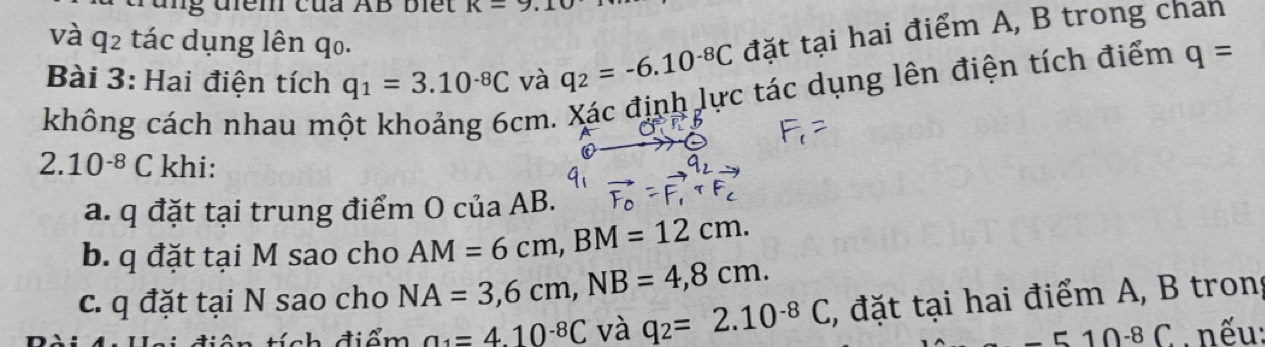 điểm của AB biết k = 9.10
và q₂ tác dụng lên q₀.
Bài 3: Hai điện tích q₁ = 3.10⁻⁸C và q₂ = -6.10⁻⁸C đặt tại hai điểm A, B trong chân
không cách nhau một khoảng 6cm. Xác định lực tác dụng lên điện tích điểm q =
A O F₁ F₂ B F₁ =
2.10⁻⁸ C khi:
⊕ ⊖
q₁ q₂
F₀ = F₁ + F₂
a. q đặt tại trung điểm O của AB.
b. q đặt tại M sao cho AM = 6 cm, BM = 12 cm.
c. q đặt tại N sao cho NA = 3,6 cm, NB = 4,8 cm.
điện tích điểm q₁= 4.10⁻⁸C và q₂= 2.10⁻⁸ C, đặt tại hai điểm A, B trong
5.10⁻⁸ C, nếu: